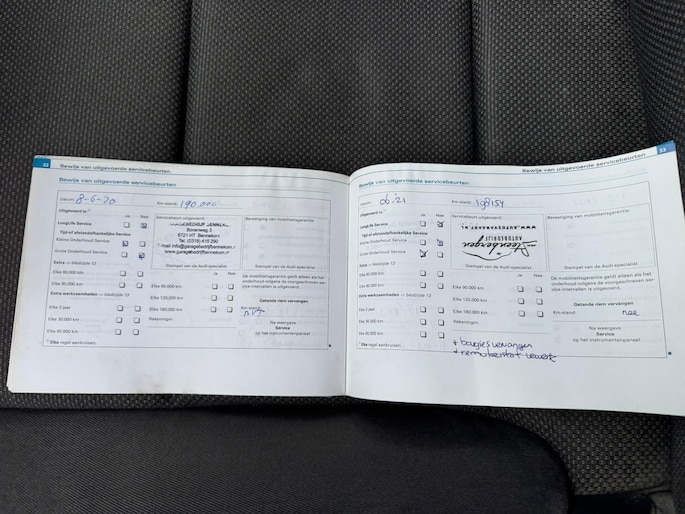 32
Bewijs van uitgevoerde servicebeurten
Bewijs van uitgevoerde servicebeurten
Datum: 8-6-20
Km-stand: 190.000
Uitgevoerd is:
Ja Nee
Servicebeurt uitgevoerd:
Bevestiging van mobiliteitsgarantie:
LongLife Service
Tijd-of afstandsafhankelijke Service
Kleine Onderhoud Service
Grote Onderhoud Service
Bovenweg 3
6721 HT Bennekom
Tel. (0318) 415 290
mail info@garagebedrijfbennekom.nl
www.garagebedrijfbennekom.nl
Stempel van de Audi-specialist
Stempel van de Audi-specialist
Extra -> bladzijde 12
Ja Nee
De mobiliteitsgarantie geldt alleen als het
onderhoud volgens de voorgeschreven ser-
vice-intervallen is uitgevoerd.
Elke 60.000 km
Elke 90.000 km
Elke 90.000 km
Extra werkzaamheden -> bladzijde 13
Elke 120.000 km
Getande riem vervangen
Elke 2 jaar
Elke 180.000 km
Km-stand:
nvt
Elke 30.000 km
Rekeningnr.
Na weergave
Service
op het instrumentenpaneel
Elke 60.000 km
Elke regel aankruisen.
33
Bewijs van uitgevoerde servicebeurten
Bewijs van uitgevoerde servicebeurten
Datum: 06.'21
Km-stand: 198154
Uitgevoerd is:
Ja Nee
Servicebeurt uitgevoerd:
Bevestiging van mobiliteitsgarantie:
LongLife Service
Tijd-of afstandsafhankelijke Service
Kleine Onderhoud Service
Grote Onderhoud Service
AUTOBEDRIJF
Steenbergen
Stempel van de Audi-specialist
Stempel van de Audi-specialist
Extra -> bladzijde 12
Ja Nee
De mobiliteitsgarantie geldt alleen als het
onderhoud volgens de voorgeschreven ser-
vice-intervallen is uitgevoerd.
Elke 60.000 km
Elke 90.000 km
Elke 90.000 km
Extra werkzaamheden -> bladzijde 13
Elke 120.000 km
Getande riem vervangen
Elke 2 jaar
Elke 180.000 km
Km-stand:
nee
Elke 30.000 km
Rekeningnr.
Na weergave
Service
op het instrumentenpaneel
Elke 60.000 km
Elke regel aankruisen.
+ bougies vervangen
+ remvloeistof